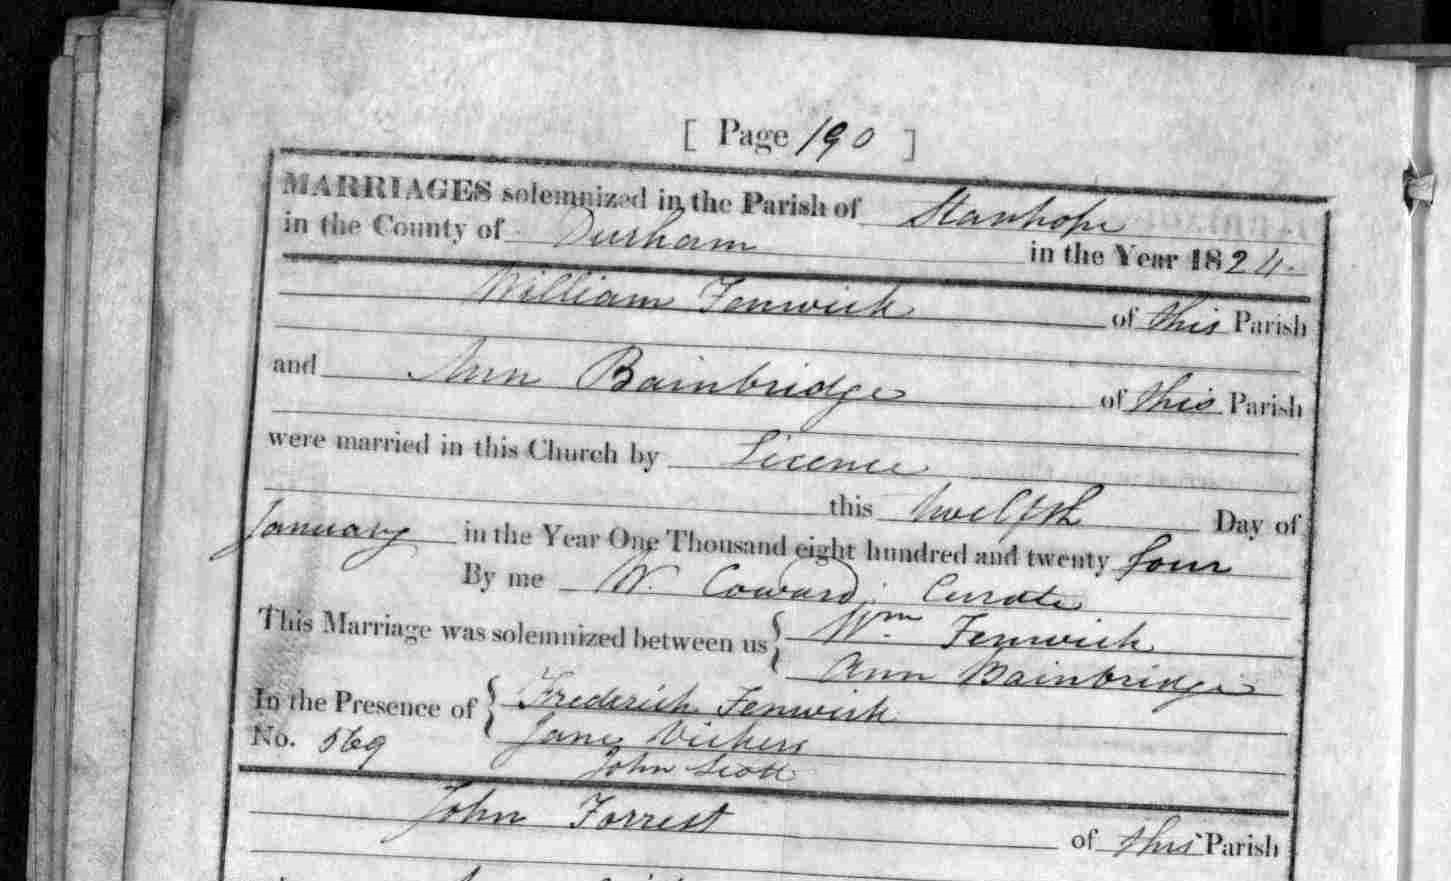 [ Page 190 ]
MARRIAGES solemnized in the Parish of Stanhope
in the County of Durham in the Year 1824
William Fenwick of this Parish
and Ann Bainbridge of this Parish
were married in this Church by Licence
this twelfth Day of
January in the Year One Thousand eight hundred and twenty four
By me W. Coward, Curate
This Marriage was solemnized between us { Wm Fenwick
Ann Bainbridge
In the Presence of { Frederick Fenwick
No. 569 Jane Vickers
John Scott
John Forrest of this Parish